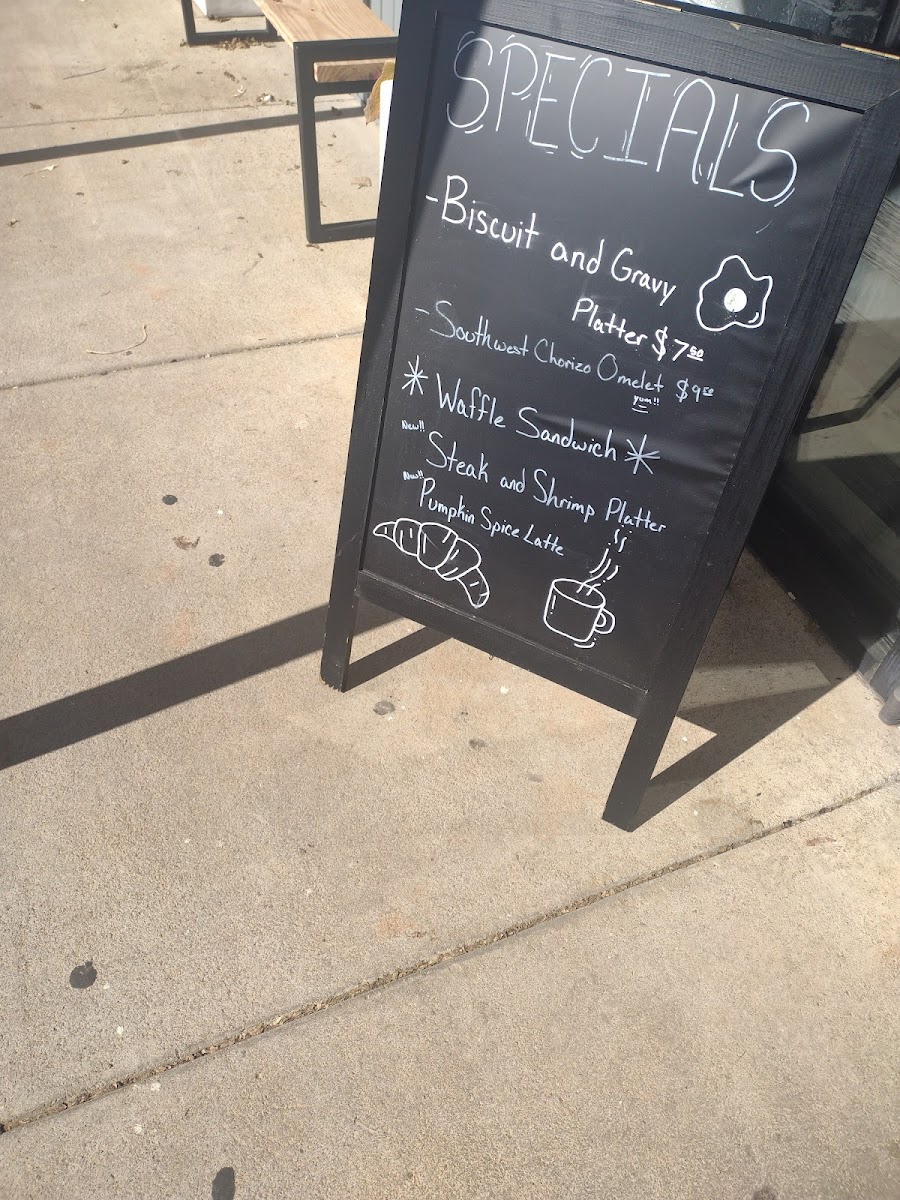 SPECIALS
-Biscuit and Gravy
Platter $7⁵⁰
-Southwest Chorizo Omelet $9⁵⁰
yum!!
* Waffle Sandwich *
New!!
Steak and Shrimp Platter
New!!
Pumpkin Spice Latte